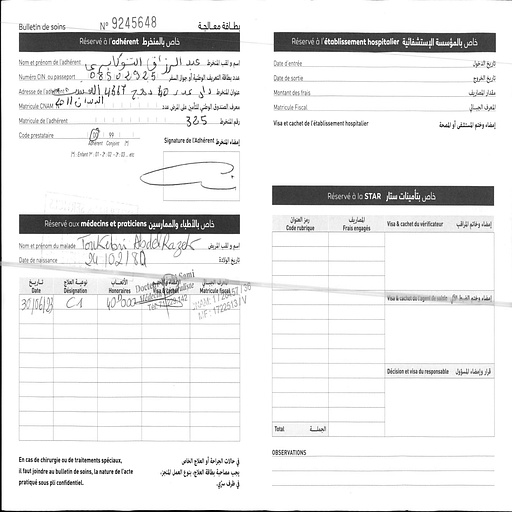 Bulletin de soins N° 9245648 بطاقة معالجة
Réservé à l'adhérent خاص بالمنخرط
Nom et prénom de l'adhérent عبد الرزاق التوكابري اسم و لقب المنخرط
Numéro CIN ou passeport 08502925 عدد بطاقة التعريف الوطنية أو جواز السفر
Adresse de l'adhérent عنوان المنخرط
Matricule CNAM معرف الصندوق الوطني للتأمين على المرض عدد
Matricule de l'adhérent 325 رقم المنخرط
Code prestataire 00 99
Adhérent Conjoint (*)
(*) : Enfant 1er : 01 - 2è : 02 - 3è : 03 ... etc
Signature de l'Adhérent إمضاء المنخرط
Réservé aux médecins et praticiens خاص بالأطباء والممارسين
Nom et prénom du malade Toukebri Abdel Razek اسم و لقب المريض
Date de naissance 24/02/80 تاريخ الولادة
تاريخ نوعية العلاج الأتعاب الإمضاء والختم المعرف الجبائي
Date Désignation Honoraires Visa & cachet Matricule fiscal
30/06/23 C1 40.000
En cas de chirurgie ou de traitements spéciaux,
il faut joindre au bulletin de soins, la nature de l'acte
pratiqué sous pli confidentiel.
في حالات الجراحة أو العلاج الخاص
يجب مصاحبة بطاقة العلاج، بنوع العمل المنجز،
في ظرف سرّي.
Réservé à l'établissement hospitalier خاص بالمؤسسة الإستشفائية
Date d'entrée تاريخ الدخول
Date de sortie تاريخ الخروج
Montant des frais مقدار المصاريف
Matricule Fiscal المعرف الجبائي
Visa et cachet de l'établissement hospitalier إمضاء وختم المستشفى أو المصحة
Réservé à la STAR خاص بتأمينات ستار
رمز العنوان المصاريف
Code rubrique Frais engagés Visa & cachet du vérificateur إمضاء وخاتم المراقب
Décision et visa du responsable قرار وإمضاء المسؤول
Total الجملة
OBSERVATIONS